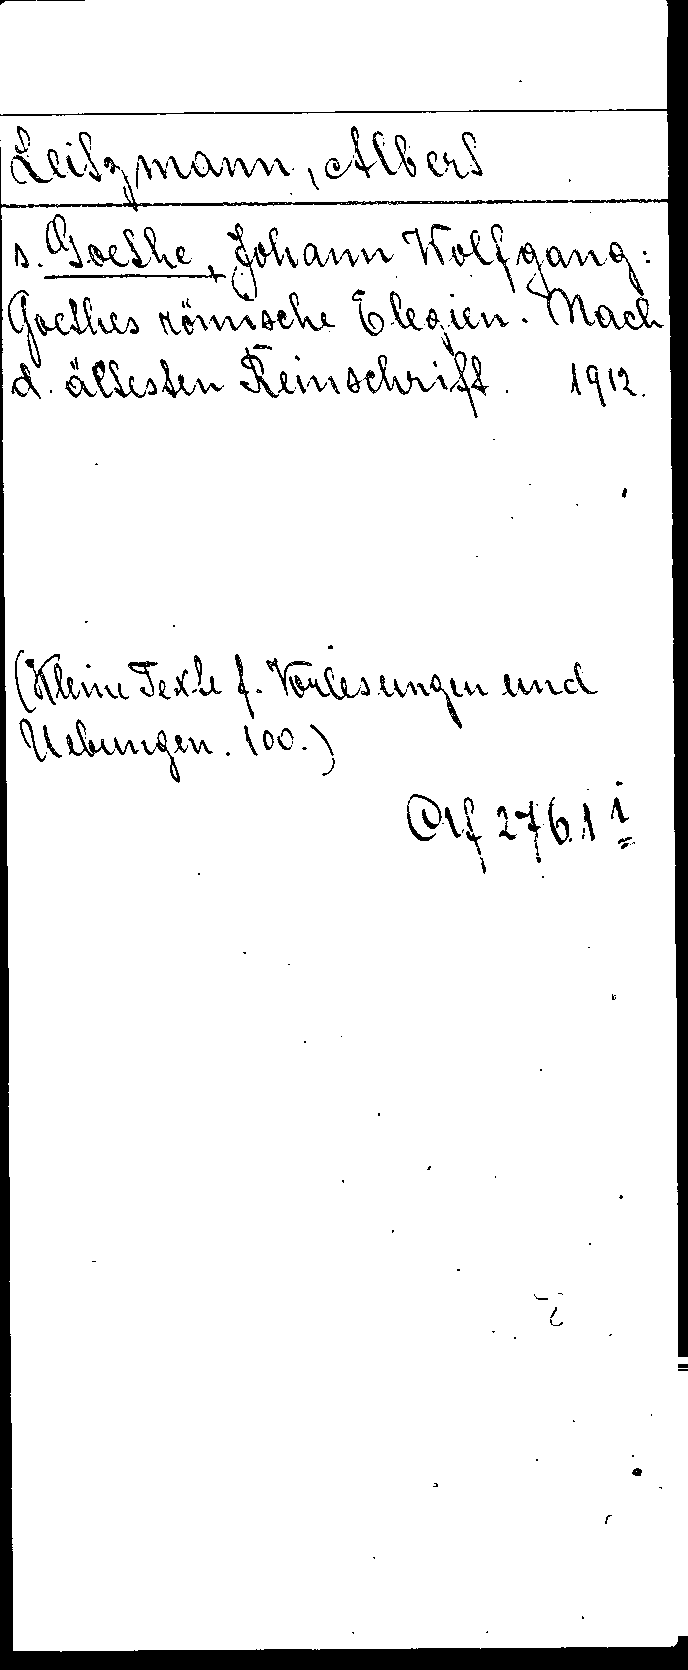 Leitzmann, Albert
s. Goethe, Johann Wolfgang:
Goethes römische Elegien. Nach
d. ältesten Reinschrift. 1912.
(Kleine Texte f. Vorlesungen und
Uebungen. 100.)
2761 i